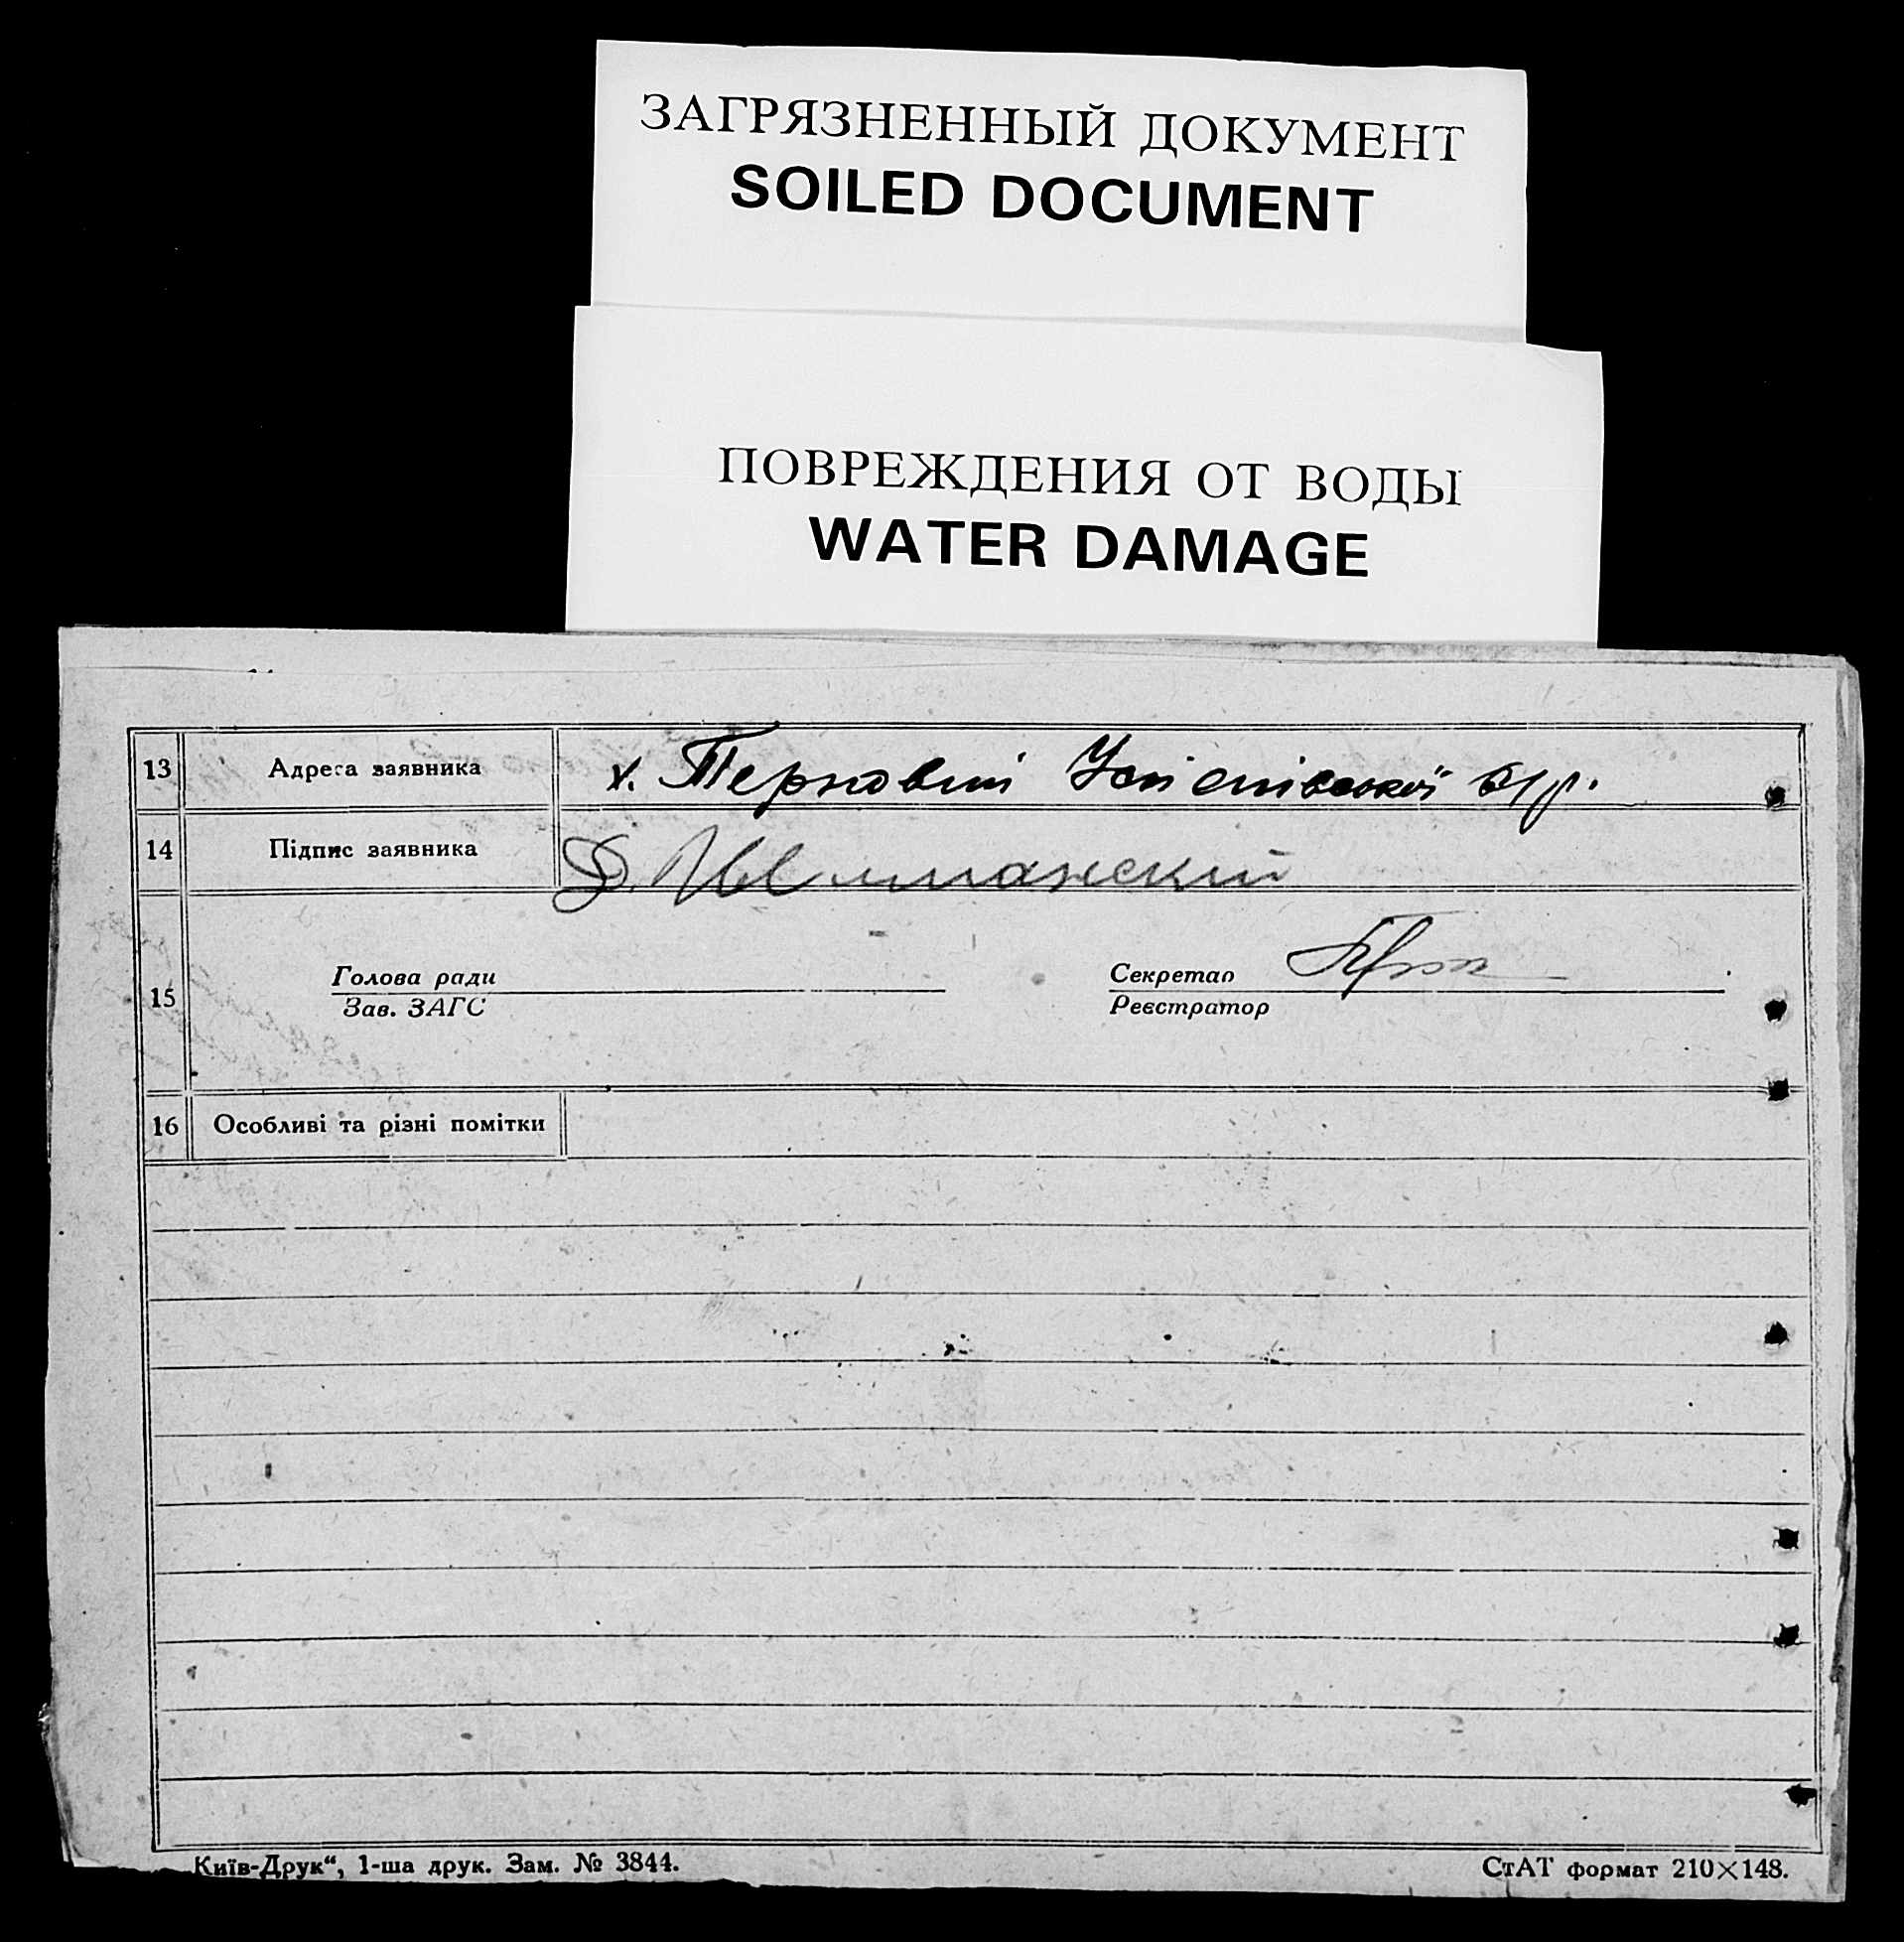 ЗАГРЯЗНЕННЫЙ ДОКУМЕНТ
SOILED DOCUMENT
ПОВРЕЖДЕНИЯ ОТ ВОДЫ
WATER DAMAGE
13 Адреса заявника х. Терновий
14 Підпис заявника Д.
Голова ради Секретар
15
Зав. ЗАГС Реєстратор
16 Особливі та різні помітки
Київ-Друк“, 1-ша друк. Зам. № 3844. СтАТ формат 210×148.